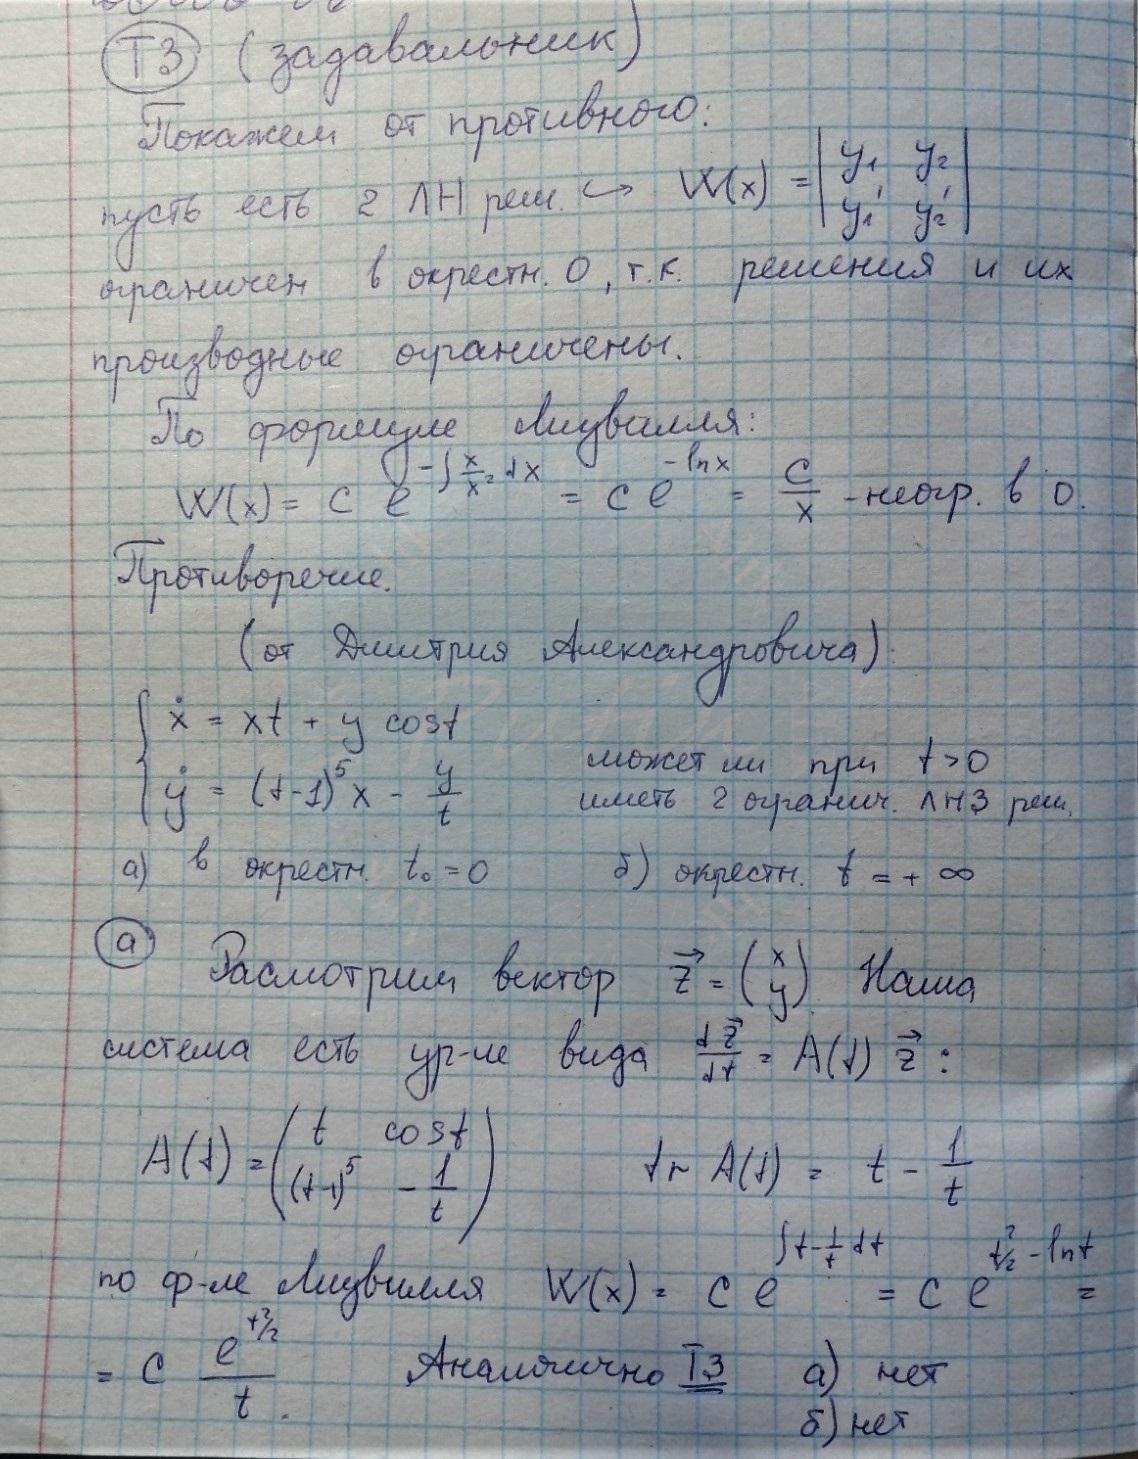 Т3 (задавальник)
Покажем от противного:
пусть есть 2 ЛН реш. ↪ W(x) = | y₁ y₂ |
| y₁' y₂' |
ограничен в окрестн. 0, т.к. решения и их
производные ограничены.
По формуле Лиувилля:
W(x) = C e^(-∫ x/x² dx) = C e^(-ln x) = C/x - неогр. в 0.
Противоречие.
(от Дмитрия Александровича)
{ ẋ = xt + y cost
{ ẏ = (t-1)⁵x - y/t
может ли при t>0
иметь 2 огранич. ЛНЗ реш.
а) в окрестн. t₀ = 0 б) окрестн. t = +∞
а Расмотрим вектор z⃗ = (x y). Наша
система есть ур-ие вида dz⃗/dt = A(t) z⃗ :
A(t) = ( t cost
(t-1)⁵ -1/t ) tr A(t) = t - 1/t
по ф-ле Лиувилля W(x) = C e^(∫t-1/t dt) = C e^(t²/2 - ln t) =
= C e^(t²/2)/t . Аналогично T3 а) нет
б) нет